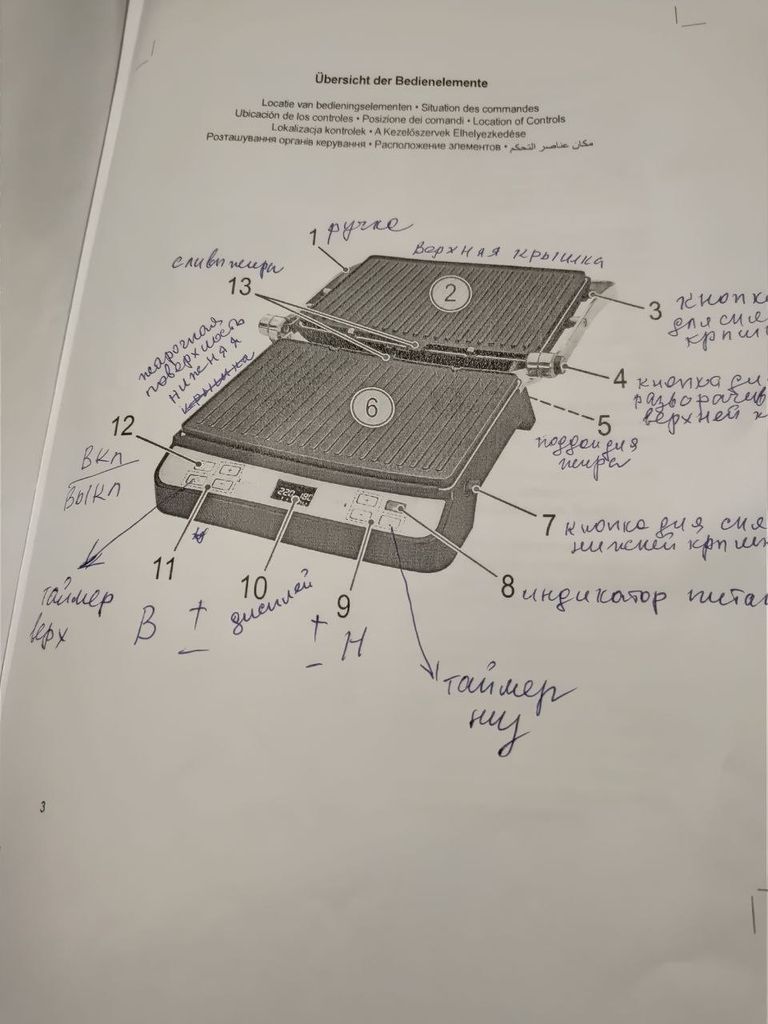 Übersicht der Bedienelemente
Locatie van bedieningselementen • Situation des commandes
Ubicación de los controles • Posizione dei comandi • Location of Controls
Lokalizacja kontrolek • A Kezelőszervek Elhelyezkedése
Розташування органів керування • Расположение элементов • مكان عناصر التحكم
1 ручка
верхняя крышка
сливы жира
13
2
3 кнопка
для сня
крыш
жарочная
поверхность
нижняя
крышка
4 кнопка дл
разворачив
верхней к
6
5
поддон для
жира
12
ВКЛ
ВЫКЛ
220 180
7 кнопка для сня
нижней крыш
11
10
9
8 индикатор пита
таймер
верх
В + -
дисплей
+ - Н
таймер
низ
3